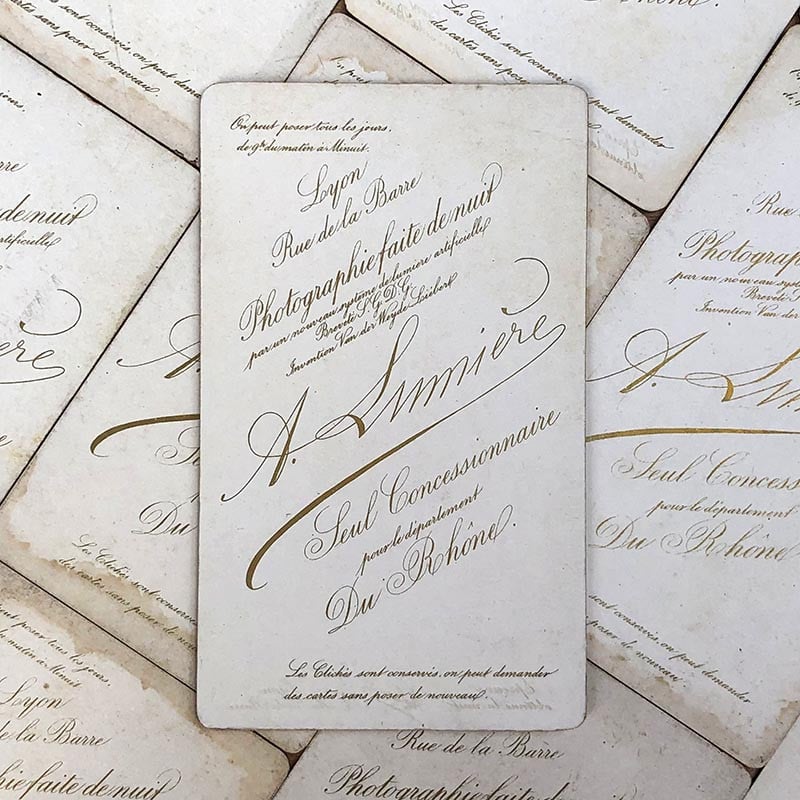 On peut poser tous les jours,
de 9h du matin à Minuit.
Lyon
Rue de la Barre
Photographie faite de nuit
par un nouveau système de lumière artificielle
Breveté S.G.D.G.
Invention Van der Weyde-Liébert
A. Lumière
Seul Concessionnaire
pour le département
Du Rhône.
Les Clichés sont conservés, on peut demander
des cartes sans poser de nouveau.